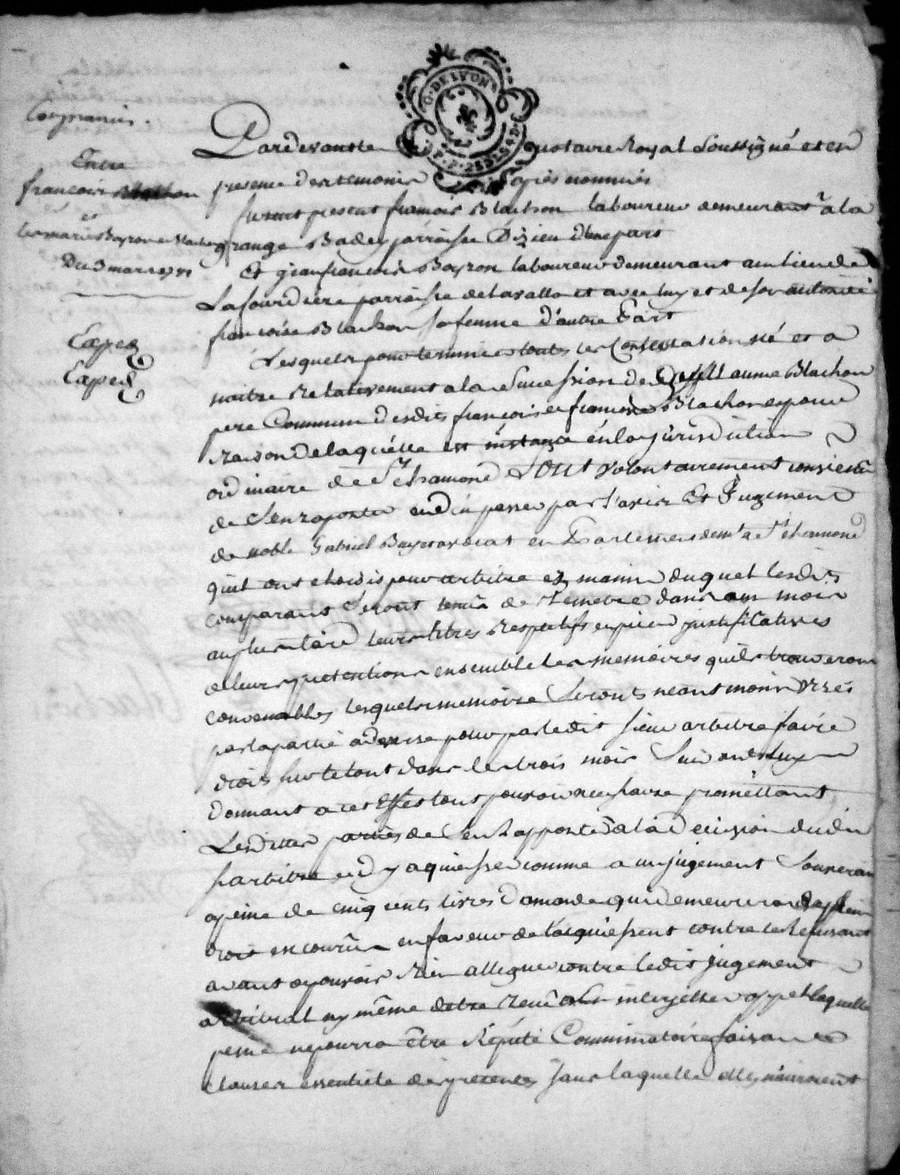 Compromis.
Entre
françois Blachon
et
les mariés Boyron et Blachon
Du 3 mars 1791
Exped
Exped
G. DE LYON
Pardevant le notaire Royal Soussigné et en
presence des temoins cy après nommés
furent presents françois Blachon laboureur demeurant a la
grange Bade parroisse Dizieu d'une part
Et jean françois Boyron laboureur demeurant au lieu de
La fourdière parroisse de lavalla et avec luy et de son autorité
françoise Blachon sa femme d'autre Part
Lesquels pour terminer touts les Contestations né et a
naitre Relativement a la Succession de Guillaume Blachon
pere Commun desdits françois et françoise Blachon et pour
Raison de laquelle est instance en la jurisdiction
ordinaire de St chamond Sont volontairement convienus
de Sen raporter et d'en passer par l'avis Et Jugement
de noble Gabriel avocat en Parlement demt a St chamond
quil ont choisis pour arbitre ez mains duquel lesdits
comparants Seront tenus de Remetre dans un mois
au plus tard leurs titres Respectifs et pieces justificatives
a leurs pretentions ensemble les memoires quils trouveront
convenables lesquels memoire Seronts neantmoins
par la partie adverse pour par ledit Sieur arbitre faire
droit sur le tout dans les trois mois Suivants
Donnant a cet Effet tous pouvoir necessaire promettants
Lesdittes parties de Sen Rapporter a la Decision dudit
Sr arbitre et d'y aquiesser comme a un jugement Souverain
a peine de cinq cents livres d'amande qui demeurera de plein
droit encourüe en faveur de l'aquiessent contre le Refusant
avant de pouvoir Rien alleguer contre ledit jugement
arbitral ny même detre Reçu a en interjetter appel laquelle
peine ne pourra être Réputé Comminatoire faisant
Clauser essentiele des presentes sans laquelle elles n'auroient